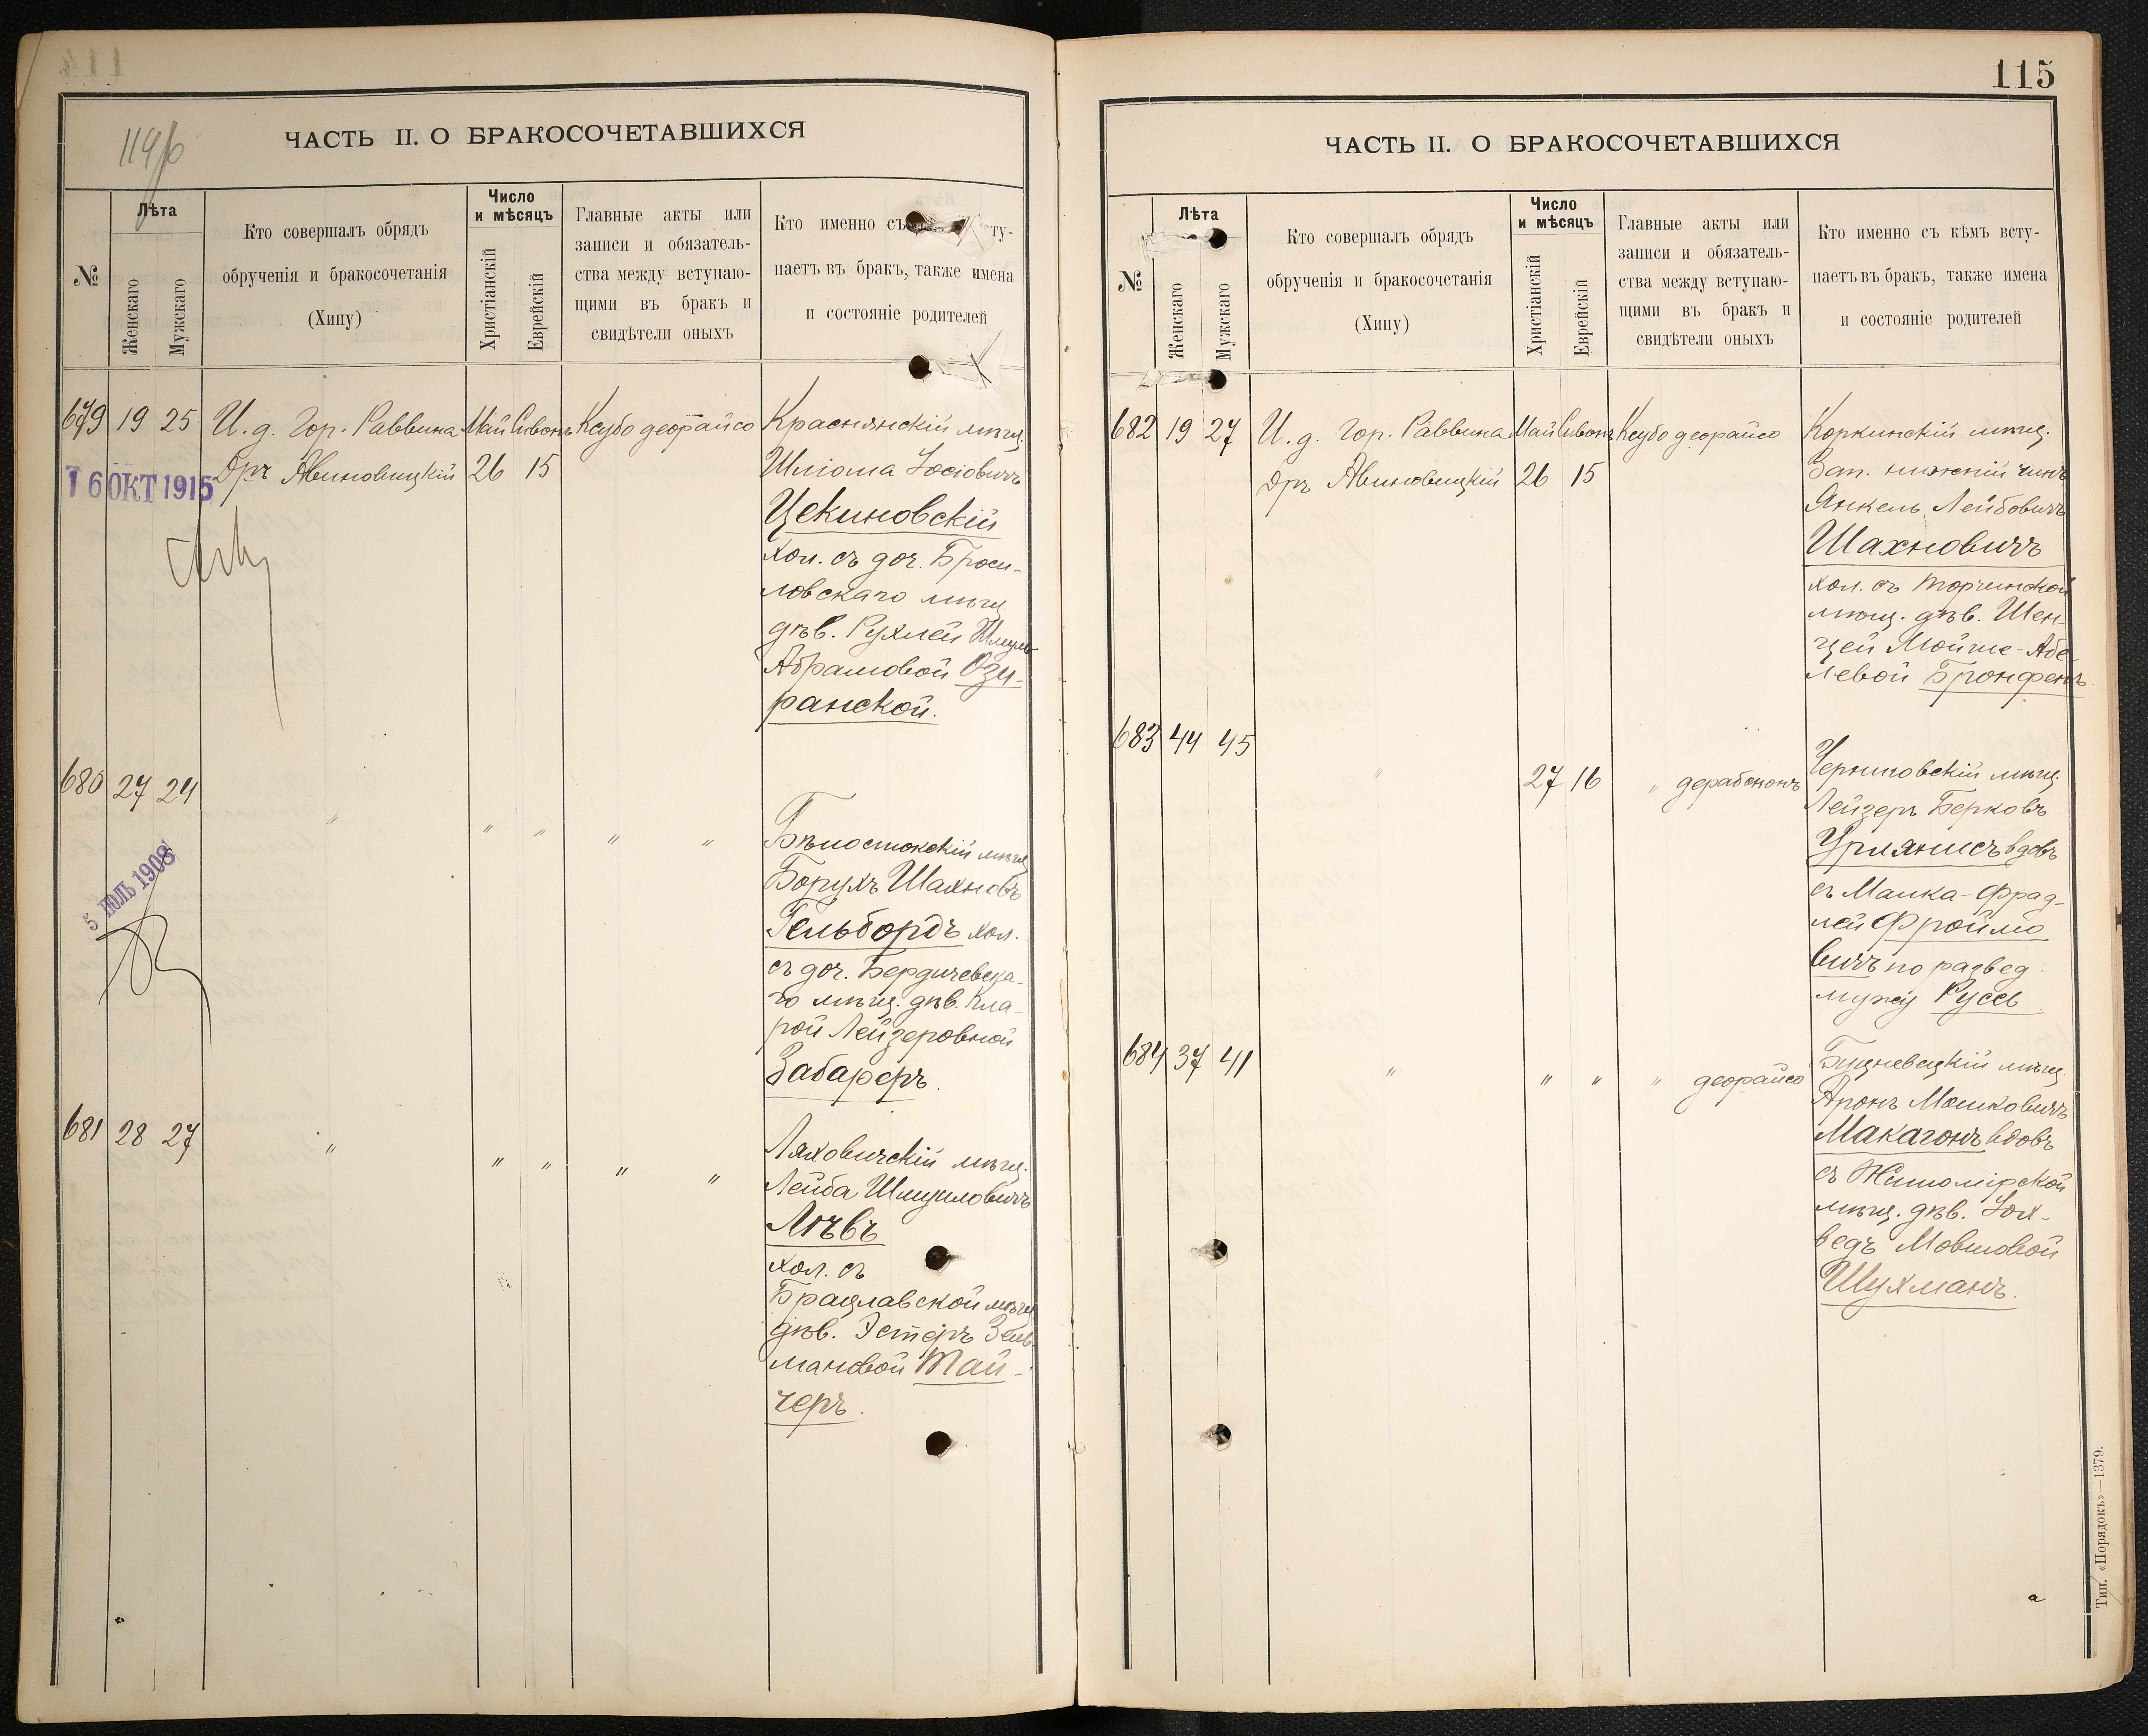 114об
ЧАСТЬ II. О БРАКОСОЧЕТАВШИХСЯ
№
Лѣта
Женскаго
Мужскаго
Кто совершалъ обрядъ
обрученія и бракосочетанія
(Хипу)
Число
и мѣсяцъ
Христіанскій
Еврейскій
Главные акты или
записи и обязатель-
ства между вступаю-
щими въ бракъ и
свидѣтели оныхъ
Кто именно съ ту-
паетъ въ бракъ, также имена
и состояніе родителей
679 19 25 И. д. Гор. Раввина Май Сивонъ Ксубо деорайсо Краснянскій мѣщ.
16 ОКТ 1915
Дръ Авиновицкій 26 15 Шліома Іосіовичъ
Цекиновскій
хол. съ доч. Броси-
ловскаго мѣщ
дѣв. Рухлей Шмуль-
Абрамовой Ози-
ранской.
680 27 24
" " " " " Бѣлостокскій мѣщ
5 ІЮЛЬ 1908
Борухъ Шахновъ
Гельбордъ хол.
съ доч. Бердичевска-
го мѣщ. дѣв. Кла-
рой Лейзеровной
Забареръ.
681 28 27 " " " " " Ляховичскій мѣщ.
Лейба Шмуиловичъ
Лѣвъ
хол. съ
Брацлавской мѣщ
дѣв. Эстеръ Зель-
мановой Тай-
черъ.
115
ЧАСТЬ II. О БРАКОСОЧЕТАВШИХСЯ
№
Лѣта
Женскаго
Мужскаго
Кто совершалъ обрядъ
обрученія и бракосочетанія
(Хипу)
Число
и мѣсяцъ
Христіанскій
Еврейскій
Главные акты или
записи и обязатель-
ства между вступаю-
щими въ бракъ и
свидѣтели оныхъ
Кто именно съ кѣмъ всту-
паетъ въ бракъ, также имена
и состояніе родителей
682 19 27 И. д. Гор. Раввина Май Сивонъ Ксубо деорайсо Коркинскій мѣщ.
Дръ Авиновицкій 26 15 Зап. нижній чинъ
Янкель Лейбовичъ
Шахновичъ
хол. съ Торчинской
мѣщ. дѣв. Шен-
цей Мойше-Абе-
левой Бронфенъ
683 44 45
" 27 16 " дерабононъ Черниговскій мѣщ.
Лейзеръ Берковъ
Урлянисъ вдовъ
съ Малка-Фрад-
лей Фроймо
вичъ по развед.
мужу Русь
684 37 41 " " " " деорайсо
Аронъ Мошковичъ
Макагонъ вдовъ
съ Житомірской
мѣщ. дѣв. Іох-
ведъ Мовшовой
Шухманъ.
Тип. «Порядокъ»—1379.